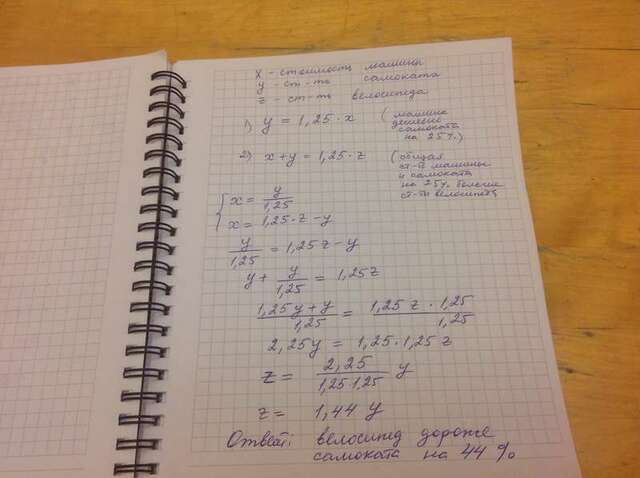 x - стоимость машины
y - ст-ть самоката
z - ст-ть велосипеда
1) y = 1,25 · x (машина дешевле
самоката
на 25%)
2) x + y = 1,25 · z (общая
ст-ть машины
и самоката
на 25% больше
ст-ти велосипед)
{ x = y/1,25
x = 1,25 · z - y
y/1,25 = 1,25 z - y
y + y/1,25 = 1,25 z
1,25 y + y / 1,25 = 1,25 z · 1,25 / 1,25
2,25 y = 1,25 · 1,25 z
z = 2,25 / 1,25 · 1,25 y
z = 1,44 y
Ответ: велосипед дороже
самоката на 44 %